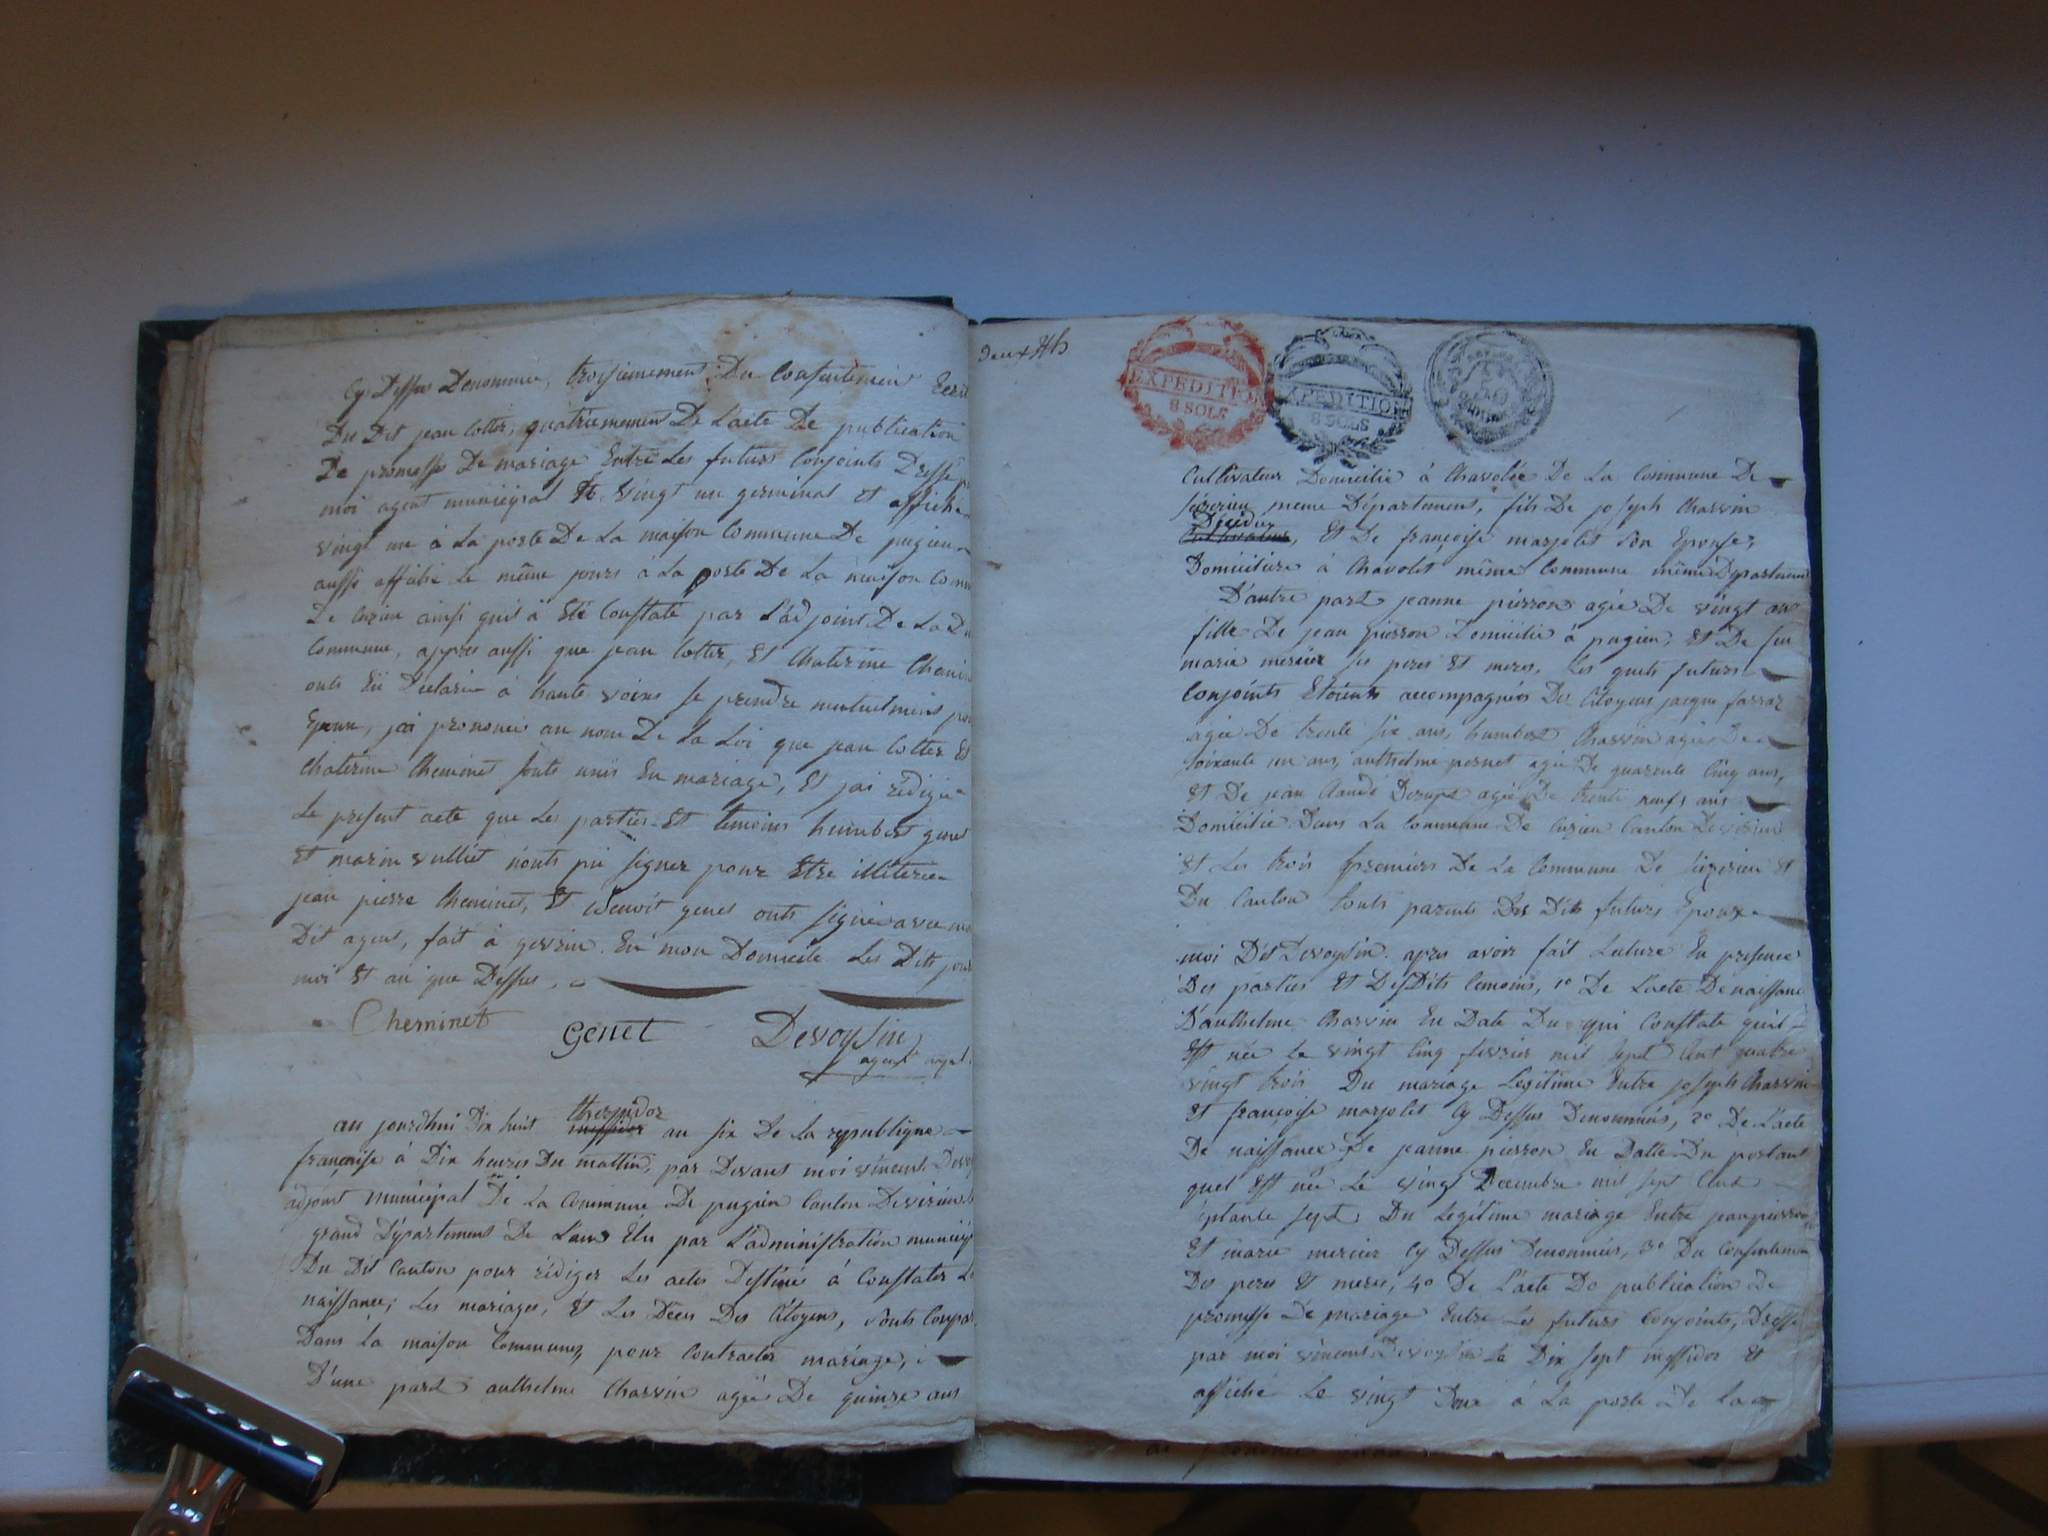 Cy Dessus Denommee, troisiemement, Du Consentement Ecrit
Du Dit jean Cotter, quatriemement De L'acte De publication
De promesse De mariage Entre Les futurs Conjoints Dressé
moi agent municipal Le vingt un germinal et affiché
vingt un à La porte De La maison Commune De pugieu
aussi affiché Le même jours à La porte De La maison Comm
De Cuzieu ainsi quil a Eté Constaté par L'adjoint De La D
Commune, appres aussi que jean Cotter, Et Chaterine Chemin
onts Declarer à haute voix Se prendre mutuelment
Epoux, jai prononcé au nom De La Loi que jean Cotter Et
Chaterine Cheminet Sonts unis En mariage, Et jai rédigé
Le present acte que Les parties Et temoins humbert genet
Et marin vulliet nonts pu Signer pour Etre illiterée
jean pierre Cheminet, Et benoit genet onts Signé avec
Dit agent, fait à En mon Domicile Les Dits jour
moi Et an que Dessus.
Cheminet genet Devoysin
agent
thermidor
au jourdhui Dix huit messidor an Six De La republique
française à Dix heures Du mattin, par Devant moi vincent Devoy
adjoint municipal De La Commune De pugieu Canton De virieu
grand Département De L'ain Elu par L'administration municip
Du Dit Canton pour rédiger Les actes Destinés à Constater
naissance, Les mariages, Et Les Déces Des Citoyens, Sonts Compar
Dans La maison Commune, pour Contracter mariage,
D'une part anthelme Charvin agé De quinse ans
EXPEDITION
8 SOLS
EXPEDITION
8 SOLS
Cultivateur Domicilié à Chavolée De La Commune De
meme Département, fils De joseph Charvin
Et De françoise marjolet Son Epouse,
à Chavolet même Commune même Departement
D'autre part jeanne pierron agée De vingt ans
fille De jean pierron Domicilié à pugieu, Et De feu
marie mercier Ses peres Et meres, Les quels futurs
Conjoints Etoients accompagnés Des Citoyens jacque
agée De trente Six ans, humbert Charvin agée De
Soixante un ans, anthelme pernet agé De quarente Cinq ans,
Et De jean Claude agé De trente neuf ans
Domicilié Dans La Commune De Cuzieu Canton De virieu
Et Les trois premiers De La Commune De Et
Du Canton Sonts parents Des Dits futurs Epoux
moi Dit Devoysin apres avoir fait Lecture En presence
Des parties Et Des Dits temoins, 1º De L'acte De naissance
D'anthelme Charvin En Date Du qui Constate quil
Est née Le vingt Cinq fevrier mil Sept Cent quatre
vingt trois Du mariage Legitime Entre joseph Charvin
Et françoise marjolet Cy Dessus Denommés, 2º De L'acte
De naissance De jeanne pierron En Datte Du portant
quel Est née Le vingt Decembre mil Sept Cent
eptante Sept Du Legitime mariage Entre jean pierron
Et marie mercier Cy Dessus Denommés, 3º Du Consentement
Des peres Et meres, 4º De L'acte De publication De
promesse De mariage Entre Les futurs Conjoints, Dressé
par moi vincent Devoysin Le Dix Sept messidor Et
affiché Le vingt Deux à La porte De La